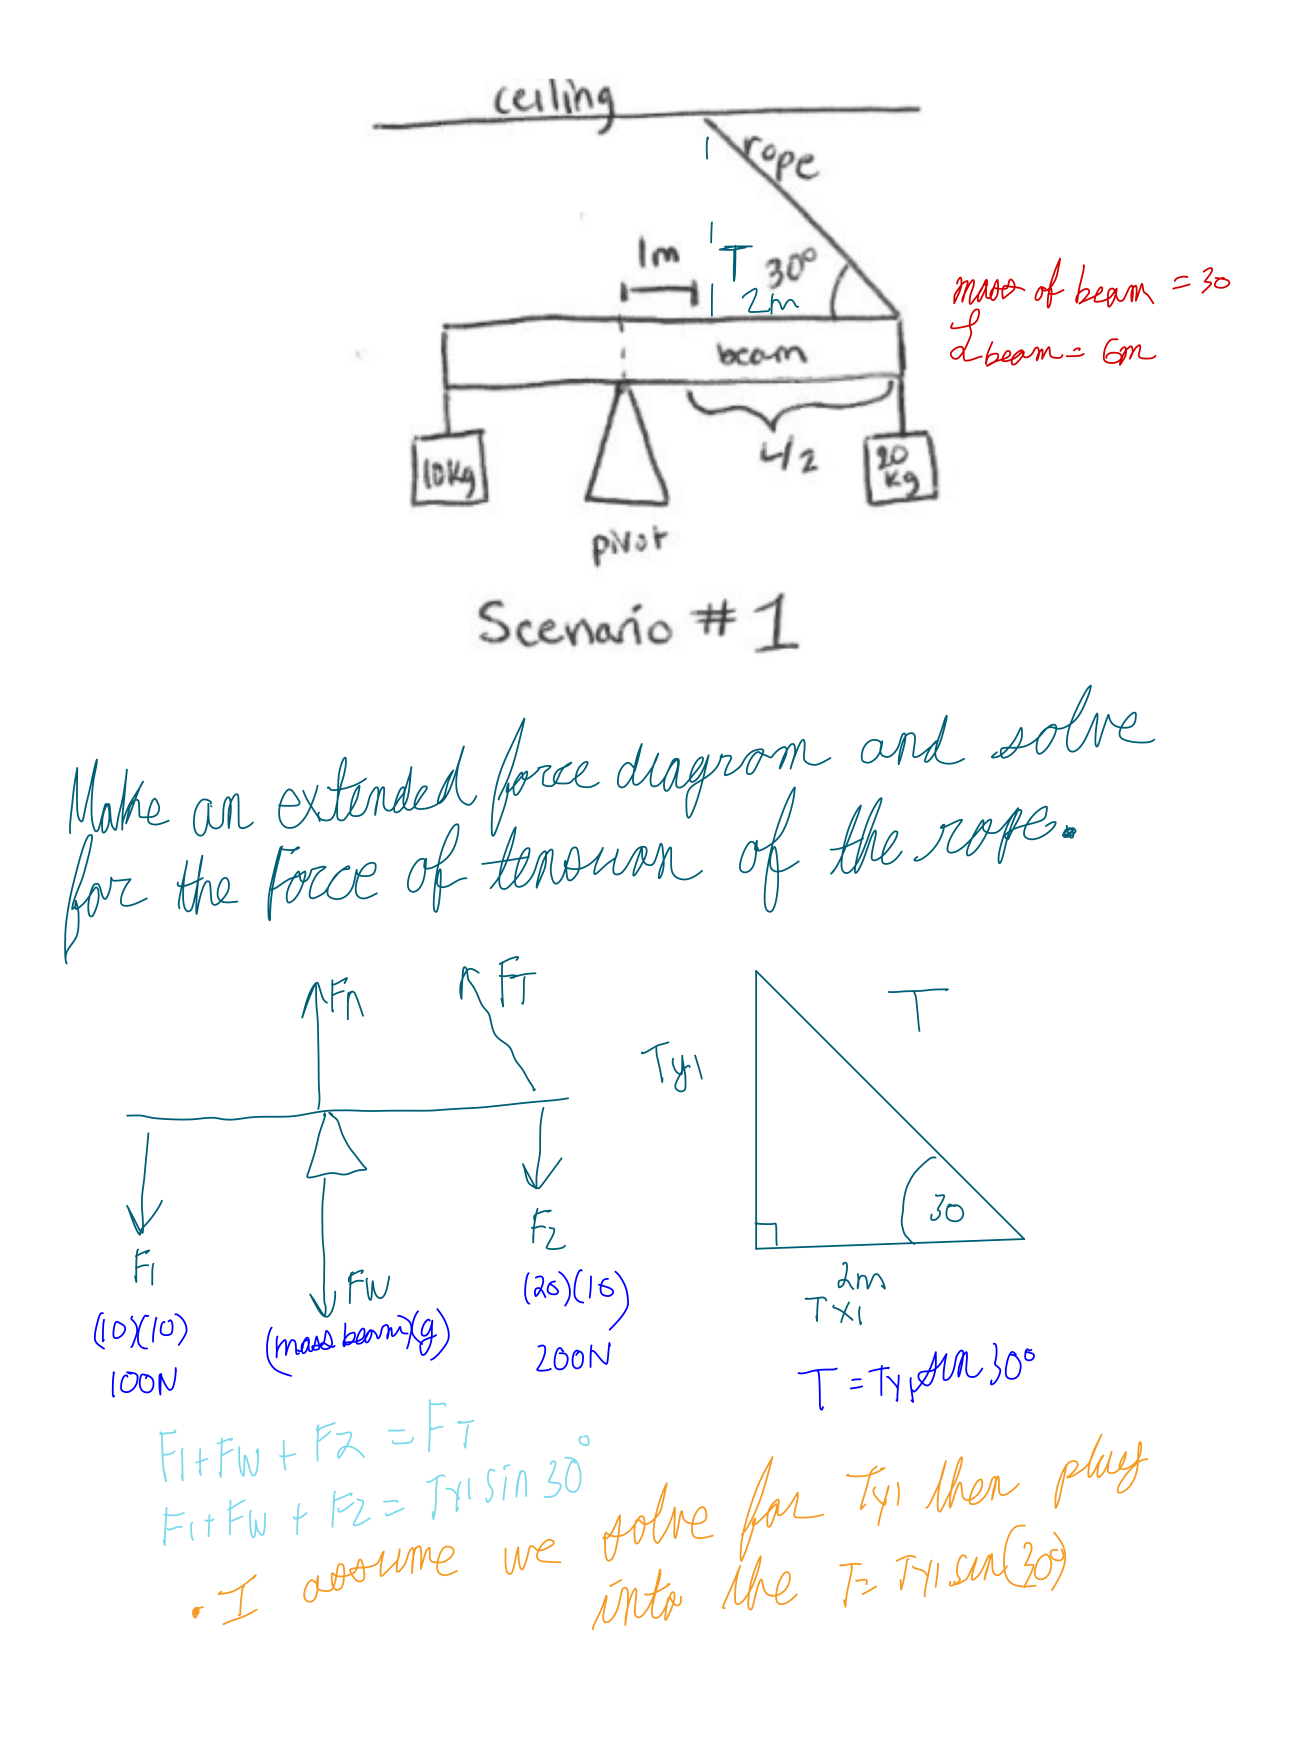 ceiling
rope
1m
T
30°
2m
mass of beam = 30
L beam = 6m
beam
L/2
10kg
20
kg
pivot
Scenario #1
Make an extended force diagram and solve
for the Force of tension of the rope.
Fn
FT
T
Ty1
30
F1
F2
FW
2m
Tx1
(10)(10)
(mass beam)(g)
(20)(10)
100N
200N
T = Ty1 sin 30°
F1 + FW + F2 = FT
F1 + FW + F2 = Ty1 sin 30°
• I assume we solve for Ty1 then plug
into the T = Ty1 sin(30°)